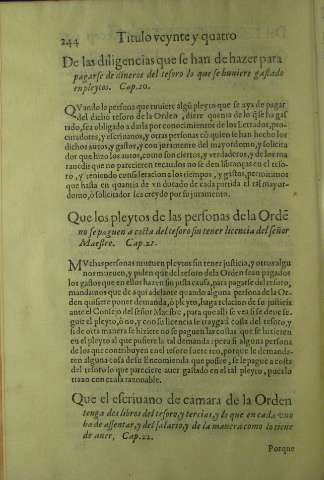 244 Titulo veynte y quatro
De las diligencias que se han de hazer para
pagarse de dineros del tesoro lo que se huuiere gastado
en pleytos. Cap. 20.
QVando la persona que tuuiere algũ pleyto que se aya de pagar
del dicho tesoro de la Orden, diere quenta de lo q̃ se ha gas
tado, sea obligado a darla por conocimientos de los Letrados, pro-
curadores, y escriuanos, y otras personas cõ quien se han hecho los
dichos autos, y gastos, y con juramento del mayordomo, y solicita
dor que hizo los autos, como son ciertos, y verdaderos, y de los ma
rauedis que no parecieren recaudos no se den libranças en el teso-
ro, y teniendo consideracion a los tiempos, y gastos, permitimos
que hasta en quantia de vn ducado de cada partida el tal mayor-
domo, ò solicitador sea creydo por su juramento.
Que los pleytos de las personas de la Ordẽ
no se paguen a costa del tesoro sin tener licencia del señor
Maestre. Cap. 21.
MVchas personas mueuen pleytos sin tener justicia, y otros algu
nos mueuen, y piden que del tesoro de la Orden sean pagados
los gastos que en ellos hazen sin justa causa, para pagarse del tesoro,
mandamos que de aqui adelante quando alguna persona de la Or-
den quisiere poner demanda, ò pleyto, haga relacion de su justicia
ante el Consejo del señor Maestre, para que alli se vea si se deue se-
guir el pleyto, ò no, y con su licencia le traygan a costa del tesoro, y
si de otra manera se hiziere no se paguen las costas que se hizieren
en el pleyto al que pusiere la tal demanda: pero si alguna persona
de los que contribuyen en el tesoro fuere reo, porque le demanda-
ren alguna cosa de su Encomienda que possee, se le pague a costa
del tesoro lo que pareciere auer gastado en el tal pleyto, pues lo
trato con causa razonable.
Que el escriuano de camara de la Orden
tenga dos libros del tesoro, y tercias, y lo que en cada vno
ha de assentar, y del salario, y de la manera como lo tiene
de auer, Cap. 22.
Porque